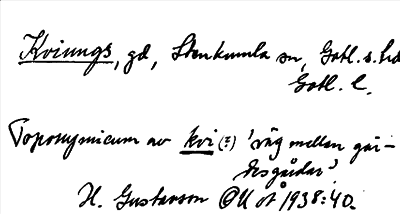 Kviungs, gd, Stenkumla sn, Gotl. s. hd
Gotl. l.
Toponymicum av kvi (?) 'väg mellan gär-
desgårdar'
H. Gustavson OU åt 1938:40.